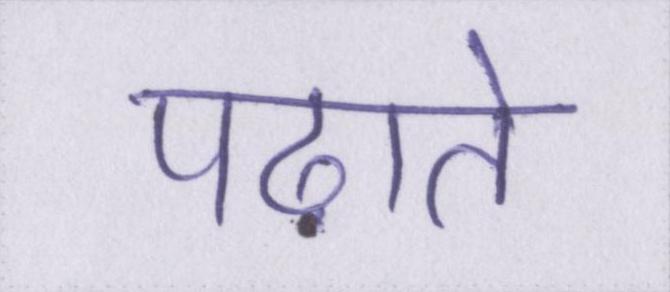 पढ़ाते